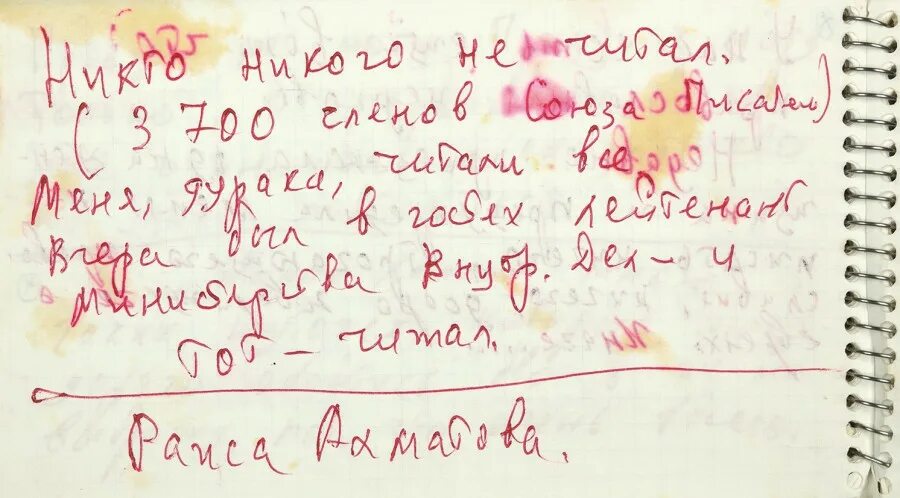 Никто никого не читал.
(3 700 членов Союза Писателей)
Меня, дурака, читали все.
Вчера был в гостях лейтенант
Министерства Внутр. Дел – и
тот – читал.
Раиса Ахматова.